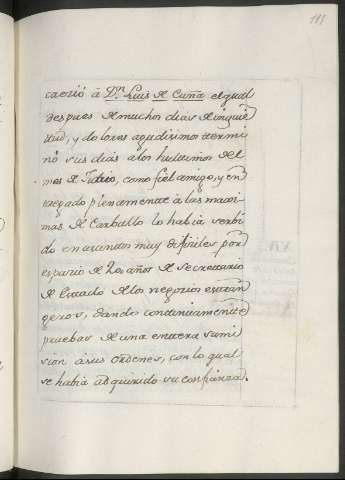 113
caezió á Dn. Luis de Cuña el qual
despues de muchos dias de inquie
tud, y dolores agudisimos termi
nó sus dias alos hultimos del
mes de Julio, como fiel amigo, y en
tregado plenamente á las maxi
mas de Carballo lo habia serbi
do en asumtos muy dificiles por
espazio de dos años de Secretario
de Estado de los negozios extran
geros, dando continuamente
pruebas de una entera sumi
sion á sus ordenes, con lo qual
se habia adquirido su confianza.